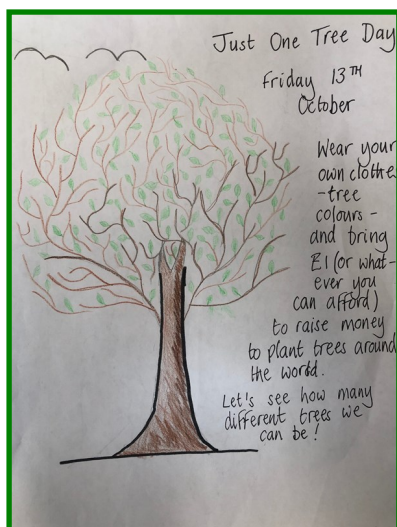 Just One Tree Day
Friday 13TH
October
Wear your
own clothes
-tree
colours -
and bring
£1 (or what-
ever you
can afford)
to raise money
to plant trees around
the world.
Let's see how many
different trees we
can be!